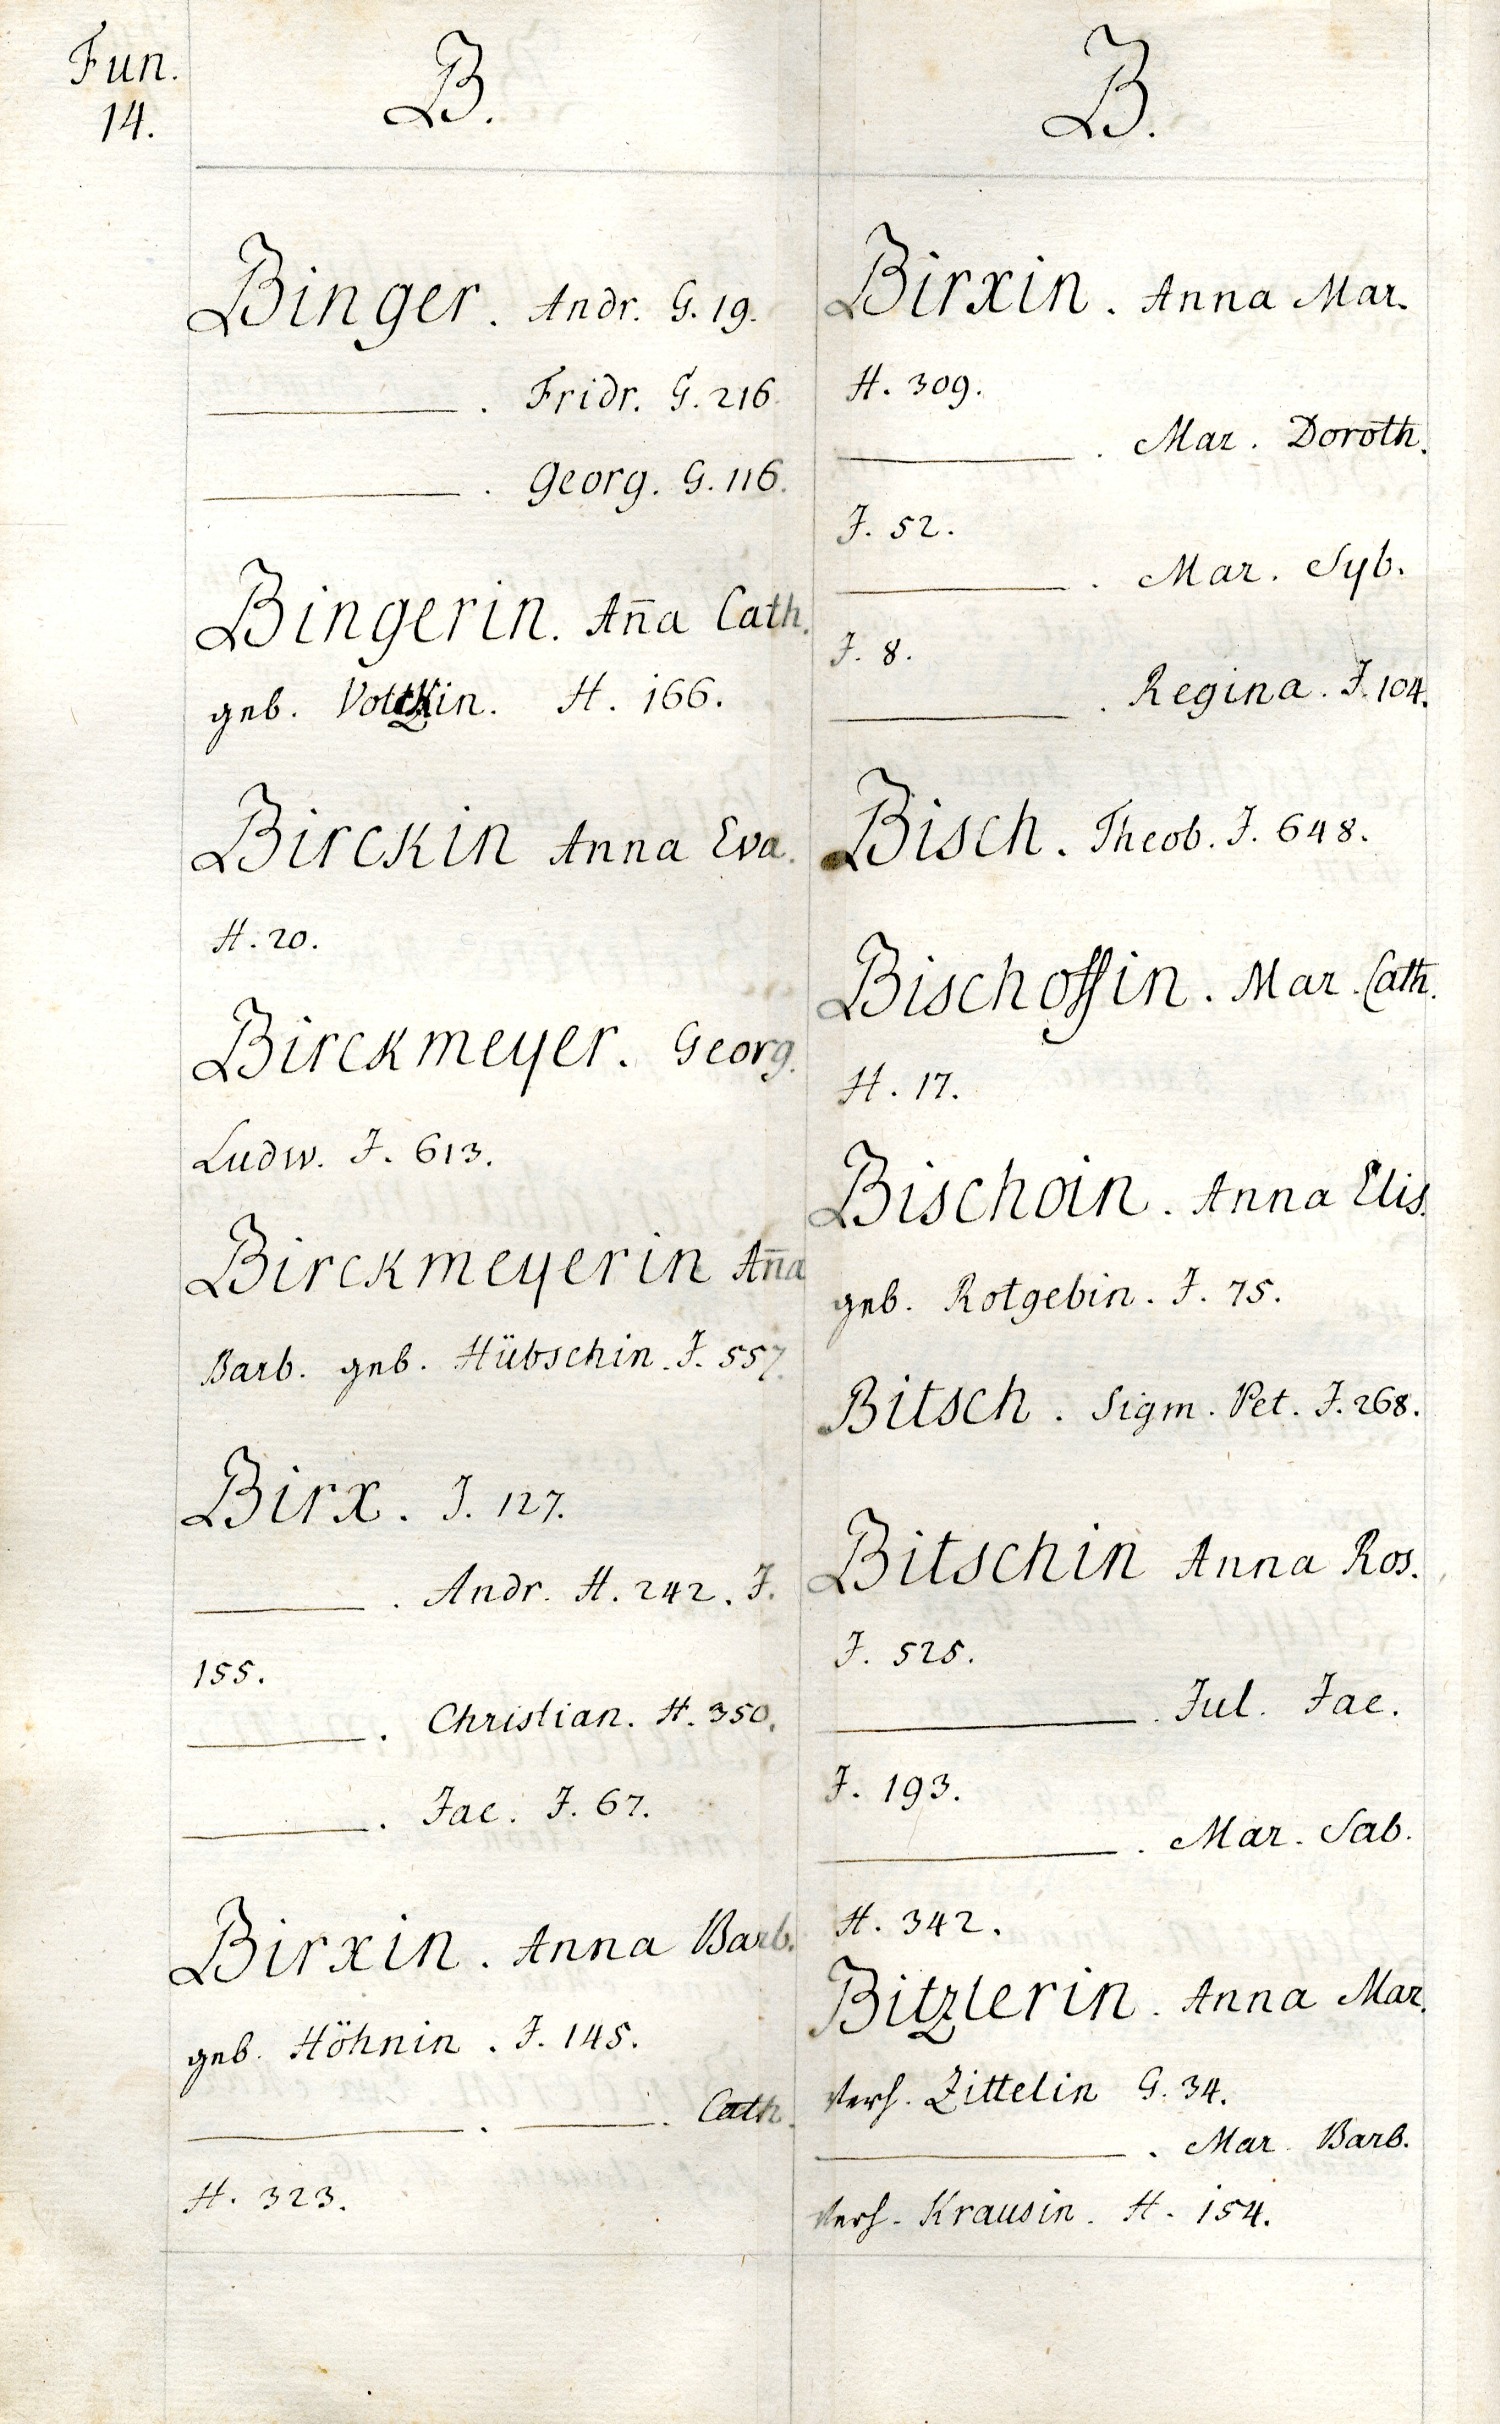 Fun.
14.
B.
Binger. Andr. G. 19.
———. Fridr. G. 216.
———. Georg. G. 116.
Bingerin. Aña Cath.
geb. H. 166.
Birckin Anna Eva.
H. 20.
Birckmeyer. Georg.
Ludw. J. 613.
Birckmeyerin Aña
Barb. geb. Hübschin. J. 557.
Birx. J. 127.
———. Andr. H. 242. J.
155.
———. Christian. H. 350.
———. Jac. J. 67.
Birxin. Anna Barb.
geb. Höhnin. J. 145.
———. ———. Cath.
H. 323.
B.
Birxin. Anna Mar.
H. 309.
———. Mar. Doroth.
J. 52.
———. Mar. Syb.
J. 8.
———. Regina. J. 104.
Bisch. Theob. J. 648.
Bischoffin. Mar. Cath.
H. 17.
Bischoin. Anna Elis.
geb. Rotgebin. J. 75.
Bitsch. Sigm. Pet. J. 268.
Bitschin Anna Ros.
J. 525.
———. Jul. Jac.
J. 193.
———. Mar. Sab.
H. 342.
Bitzlerin. Anna Mar.
verh. Zittelin G. 34.
———. Mar. Barb.
verh. Krausin. H. 154.